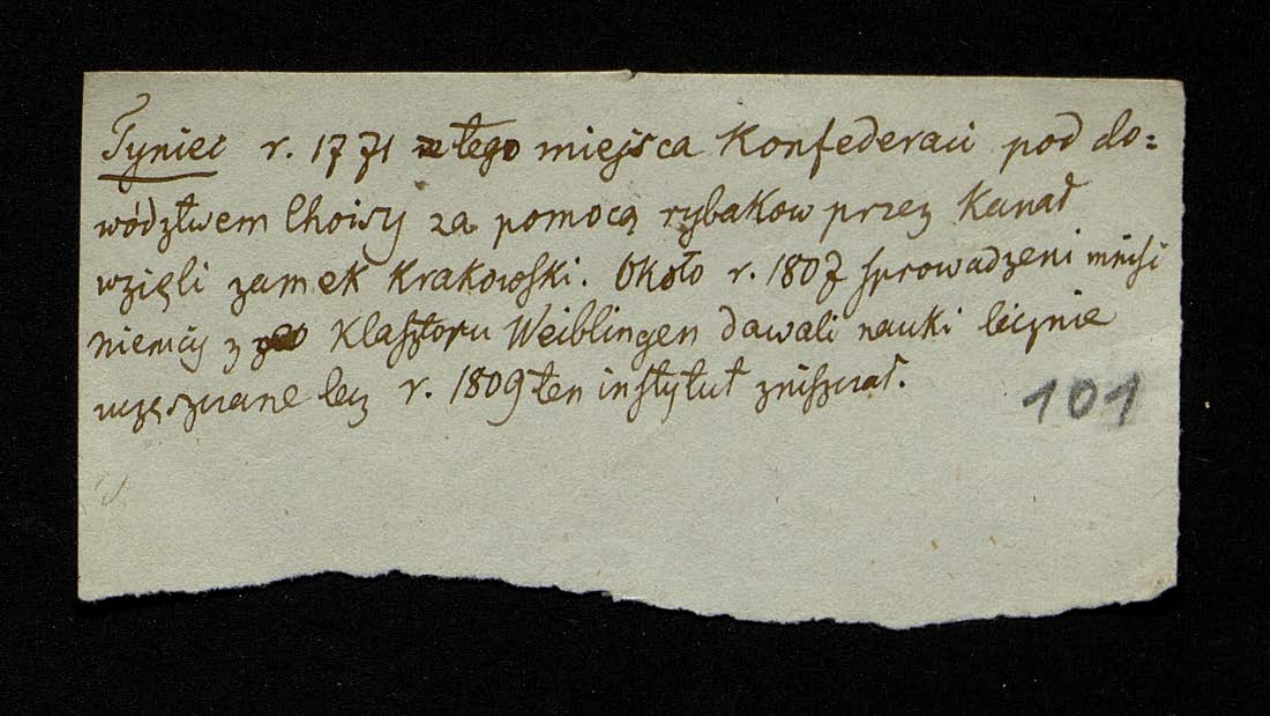 Tyniec r. 1771 z tego miejsca Konfederaci pod do=
wództwem Choisy za pomocą rybakow przez Kanał
wzięli zamek Krakowski. Około r. 1807 sprowadzeni mnisi
niemcy z Klasztoru Weiblingen dawali nauki licznie
uczęszczane lecz r. 1809 ten instytut zniszczał.
101